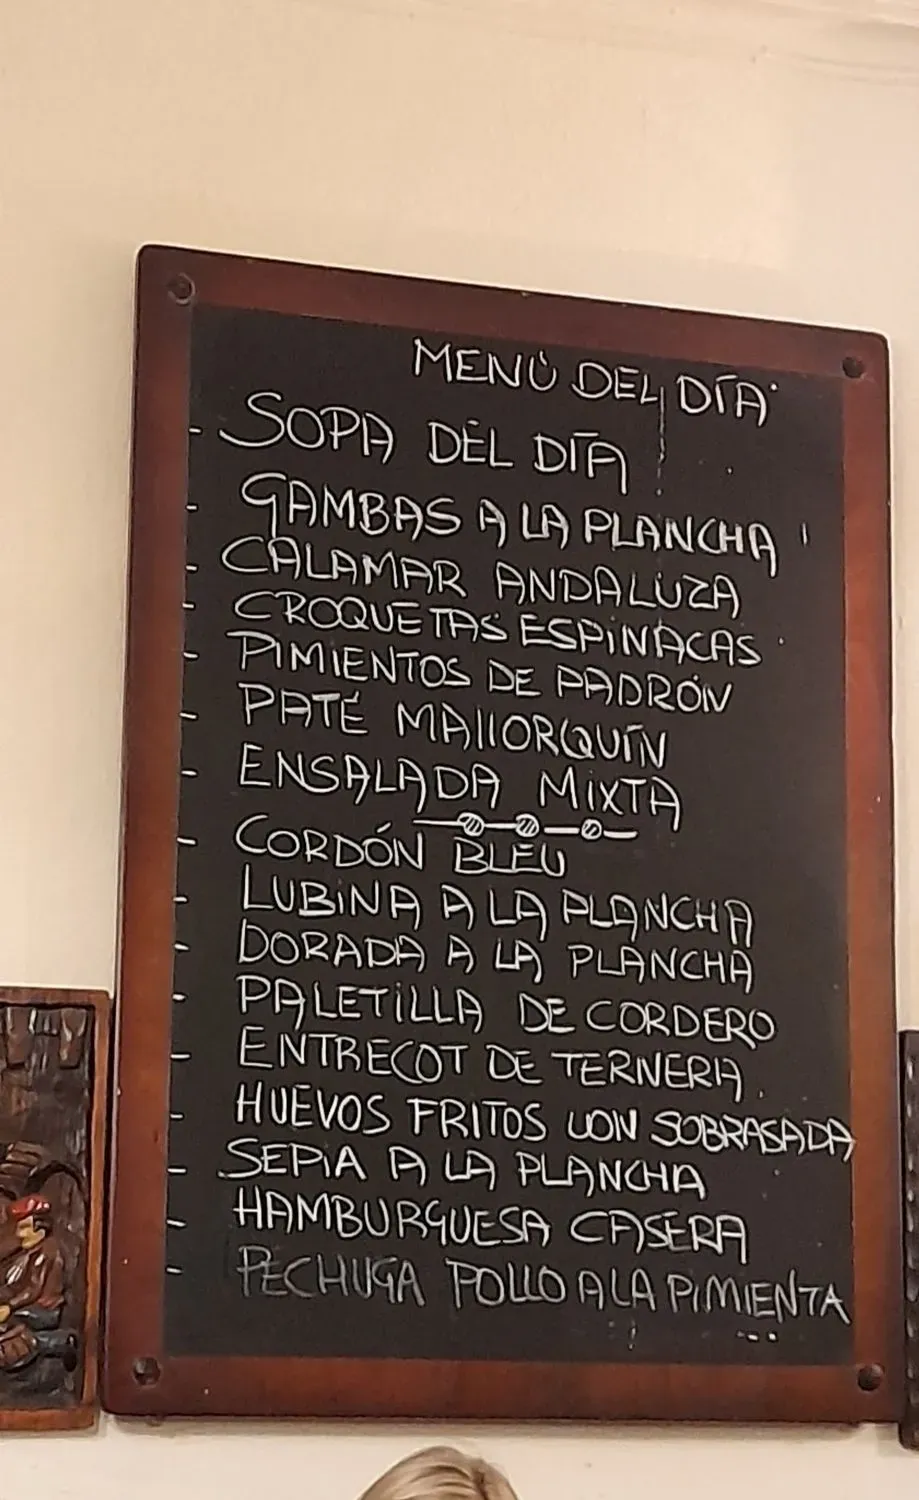 MENÚ DEL DÍA
- SOPA DEL DÍA
- GAMBAS A LA PLANCHA
- CALAMAR ANDALUZA
- CROQUETAS ESPINACAS
- PIMIENTOS DE PADRÓN
- PATÉ MALLORQUÍN
- ENSALADA MIXTA
- CORDÓN BLEU
- LUBINA A LA PLANCHA
- DORADA A LA PLANCHA
- PALETILLA DE CORDERO
- ENTRECOT DE TERNERA.
- HUEVOS FRITOS CON SOBRASADA
- SEPIA A LA PLANCHA
- HAMBURGUESA CASERA
- PECHUGA POLLO A LA PIMIENTA
...